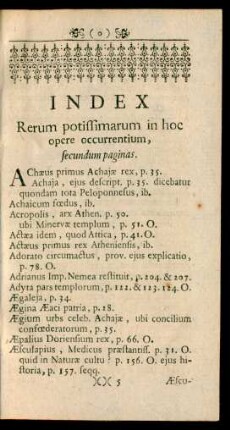 ( o )
INDEX
Rerum potissimarum in hoc
opere occurrentium,
secundum paginas.
AChæus primus Achajæ rex, p. 35.
Achaja, ejus descript. p. 35. dicebatur
quondam tota Peloponnesus, ib.
Achaicum fœdus, ib.
Acropolis, arx Athen. p. 50.
ubi Minervæ templum, p. 51. O.
Actæa idem, quod Attica, p. 41. O.
Actæus primus rex Atheniensis, ib.
Adorato circumactus, prov. ejus explicatio,
p. 78. O.
Adrianus Imp. Nemea restituit, p. 204. & 207.
Adyta pars templorum, p. 122. & 123. 124. O.
Ægaleja, p. 34.
Ægina Æaci patria, p. 28.
Ægium urbs celeb. Achajæ, ubi concilium
confœderatorum, p. 35.
Æpalius Doriensium rex, p. 66. O.
Æsculapius, Medicus præstantiss. p. 31. O.
quid in Naturæ cultu? p. 156. O. ejus hi-
storia, p. 157. seqq.
XX 5 Æscu-